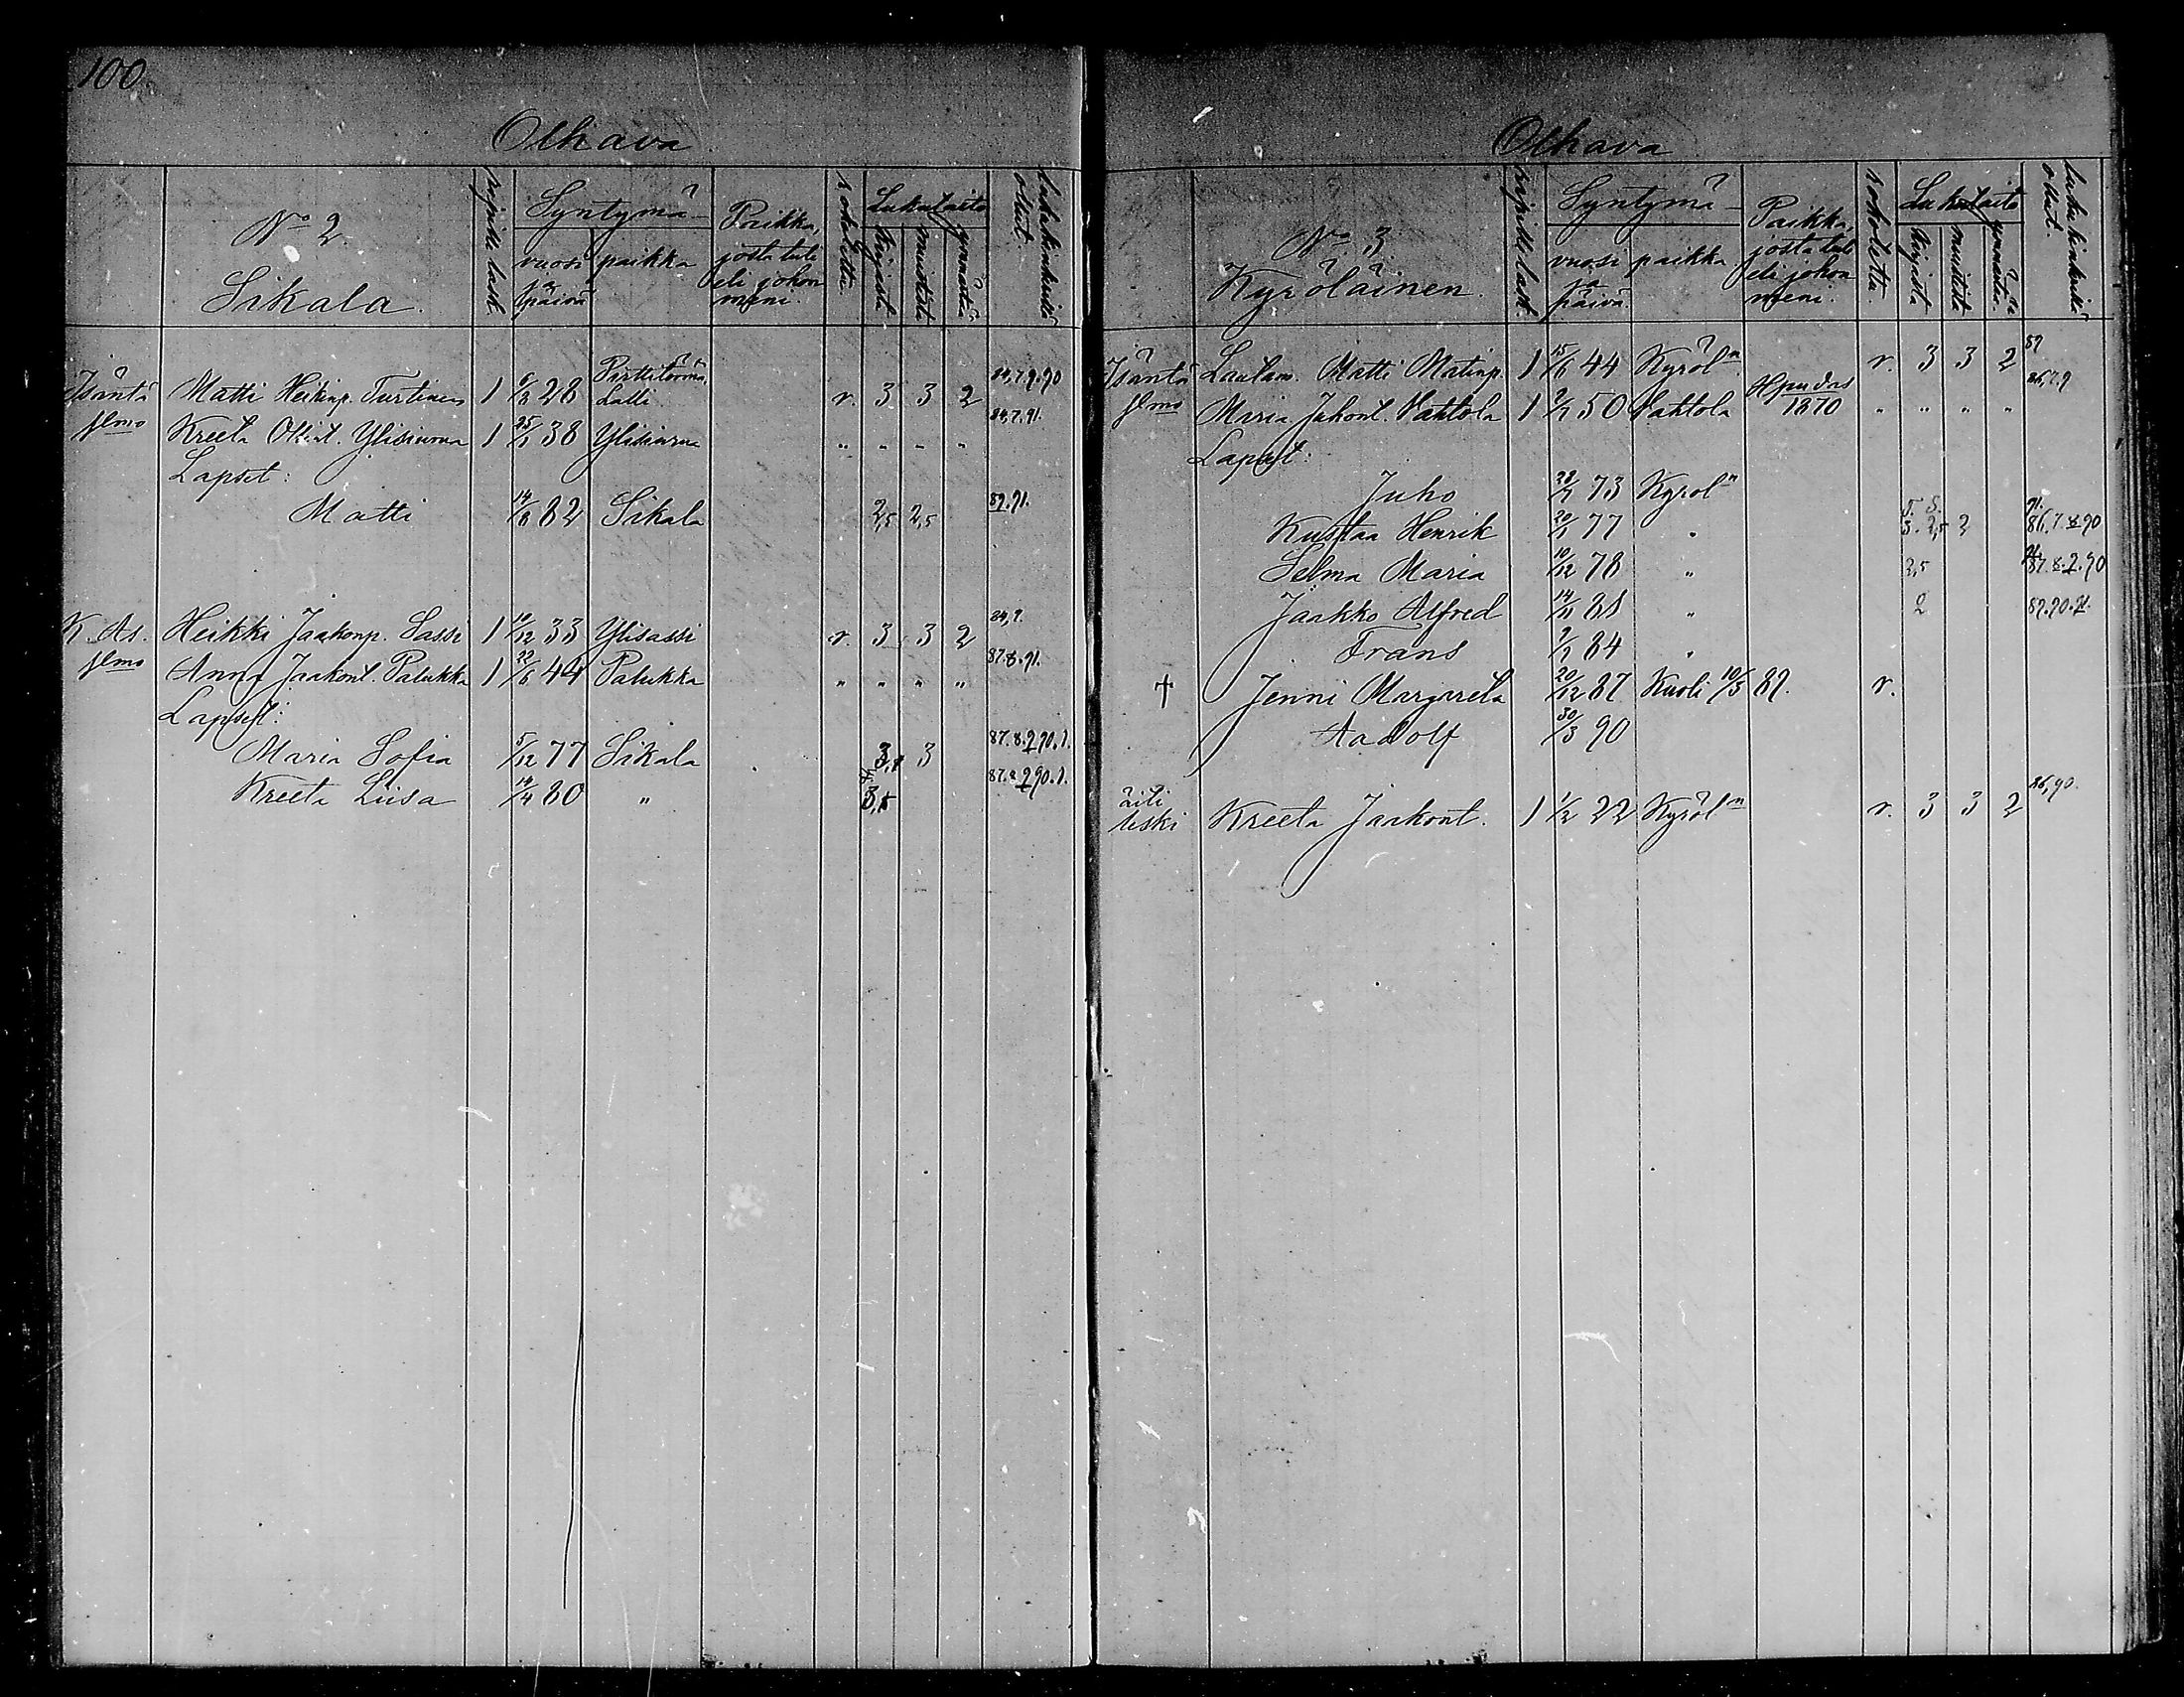 100.
Olhava
No 2.
Sikala.
ripille lask.
Syntymä-
vuosi ja päivä
paikka
Paikka, josta tuli eli johon meni.
rokotettu.
Lukutaito
kirjasta
muistista
ymmärtä
lukukinkerillä ollut.
Isäntä Matti Heikinp. Turtinen 1 6/2 28 Lalli r. 3 3 2 84,7.9.90
Kreeta Ollint. Ylisiurua 1 25/1 38 Ylisiurua " " " " 84,7.91.
Lapset:
Matti 14/8 82 Sikala 2,5 2,5 89.91.
K. As. Heikki Jaakonp. Sassi 1 10/12 33 Ylisassi r. 3 3 2 84,9.
Anna Jaakont. Palukka 1 22/6 44 Palukka " " " " 87.8.91.
Lapset:
Maria Sofia 5/12 77 Sikala 3 87.8.9.90.1.
Kreeta Liisa 14/4 80 " 87.8.9.90.1.
Olhava
No 3.
Kyröläinen.
ripille lask.
Syntymä-
vuosi ja päivä.
paikka
Paikka, josta tuli eli johon meni.
rokotettu.
Lukutaito
kirjasta
muistista
ymmärtä.
lukukinkerillä ollut.
Isäntä Lautam. Matti Matinp. 1 15/6 44 Kyröln r. 3 3 2 89
Maria Juhont. Vahtola 1 2/7 50 Vahtola Hpudas 1870 " " " " 86,7.9
Lapset:
Juho 28/7 73 Kyröln
Kustaa Henrik 20/1 77 " 2 91. 86.7.8.90
Selma Maria 10/12 78 " 2,5 87.8.9.90
Jaakko Alfred 14/11 81 " 2 89.90.91.
Frans 9/1 84 "
† Jenni Margareta 20/12 87 Kuoli 10/5 89. r.
Aadolf 30/3 90
äiti leski Kreeta Jaakont. 1 1/2 22 Kyröln r. 3 3 2 86,90.